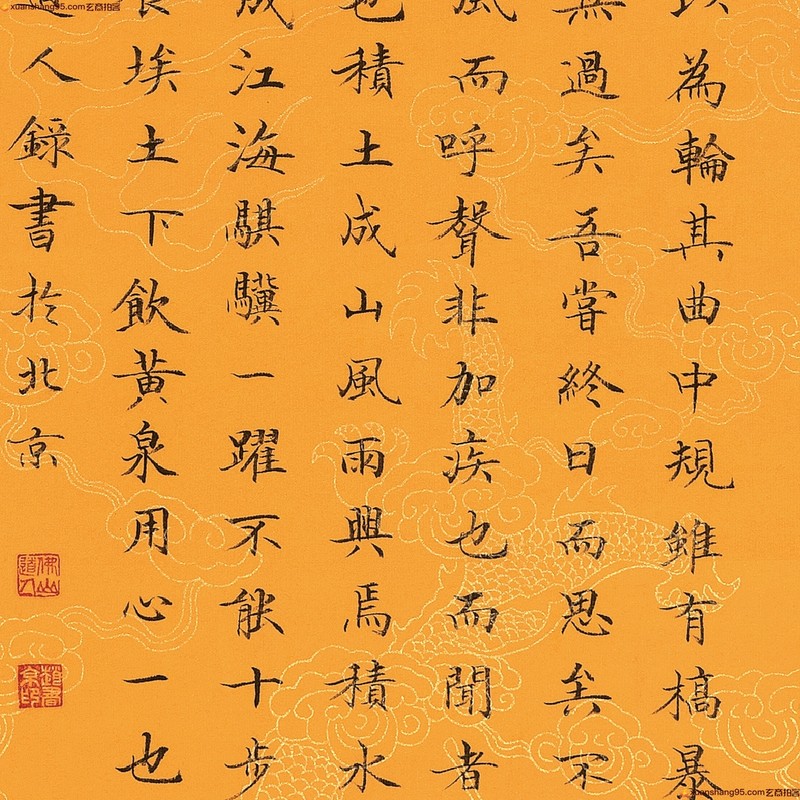 為輪其曲中規雖有槁暴
無過矣吾嘗終日而思矣不
風而呼聲非加疾也而聞者
也積土成山風雨興焉積水
成江海騏驥一躍不能十步
食埃土下飲黃泉用心一也
人錄書於北京
佛山道人
xuanshang95.com玄商拍客
xuanshang95.com玄商拍客